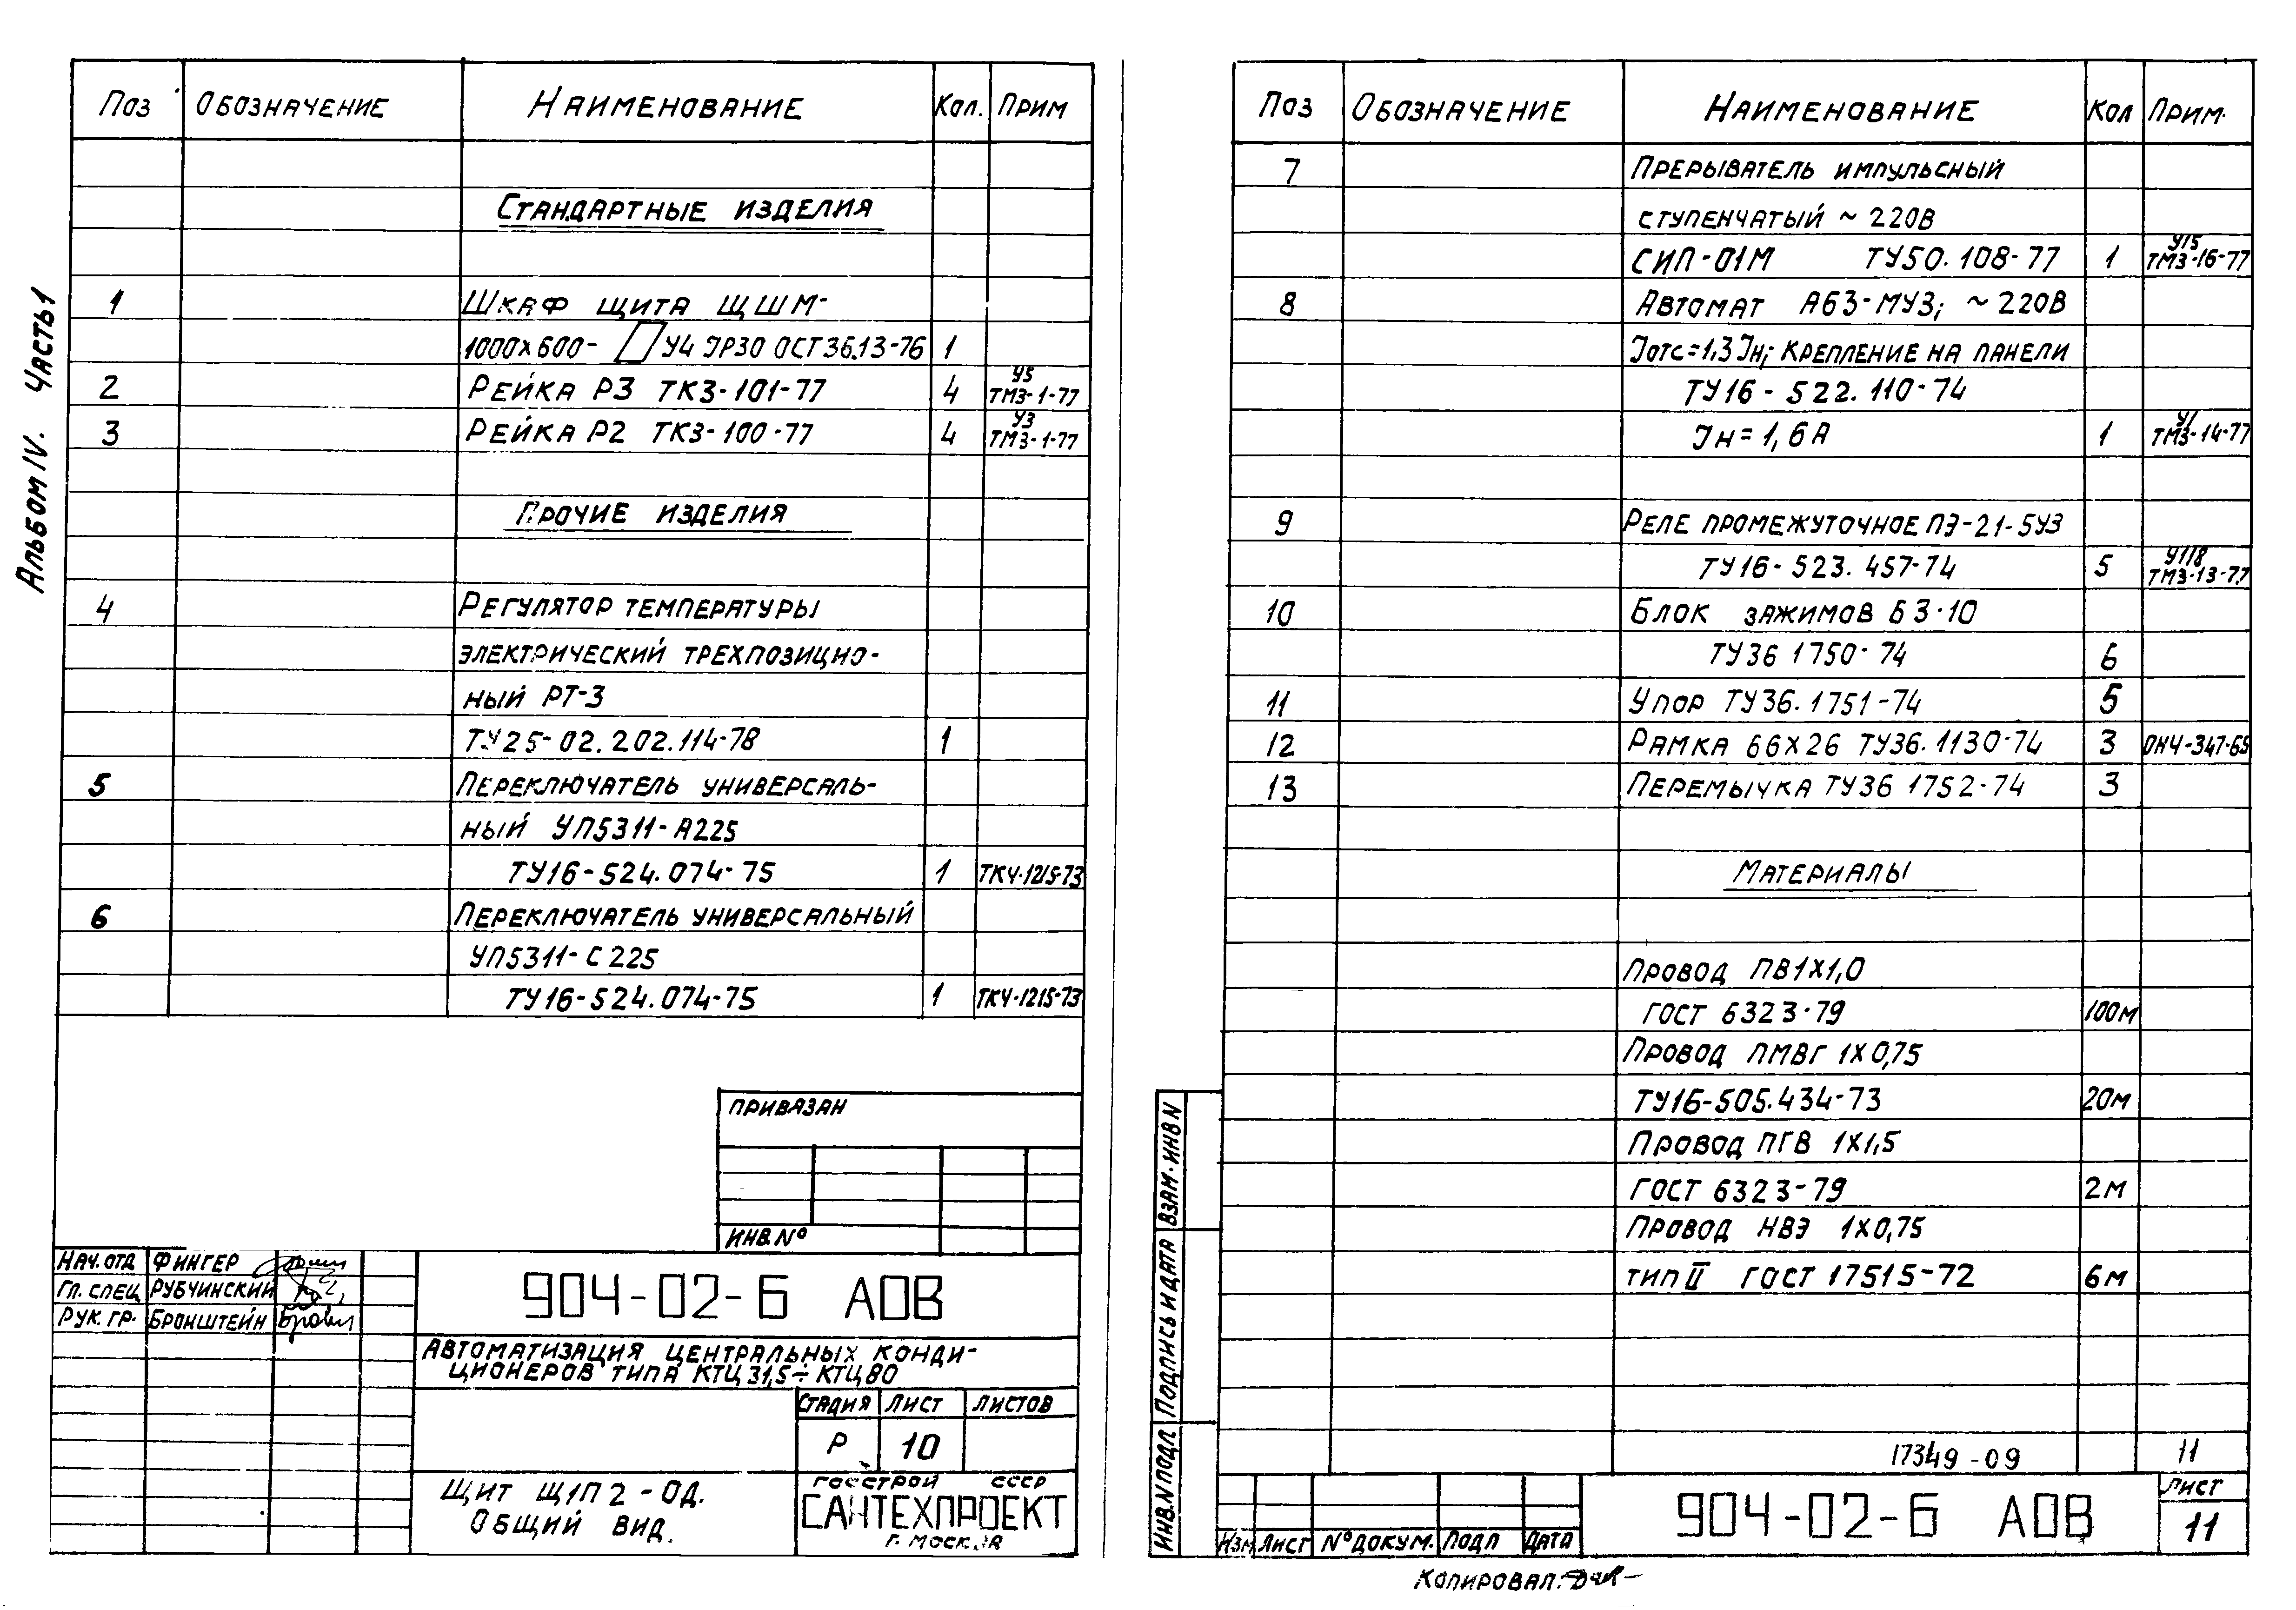 Альбом IV. Часть 1
Поз Обозначение Наименование Кол. Прим
Стандартные изделия
1 Шкаф щита ЩШМ-
1000х600- У4 IP30 ОСТ36.13-76 1
2 Рейка Р3 ТК3-101-77 4 У5 ТМ3-1-77
3 Рейка Р2 ТК3-100-77 4 У3 ТМ3-1-77
Прочие изделия
4 Регулятор температуры
электрический трехпозицио-
ный РТ-3
ТУ25-02.202.114-78 1
5 Переключатель универсаль-
ный УП5311-А225
ТУ16-524.074-75 1 ТК4-1215-73
6 Переключатель универсальный
УП5311-С225
ТУ16-524.074-75 1 ТК4-1215-73
Привязан
Инв.№
Нач.отд Фингер
Гл. спец Рубчинский
Рук. гр. Бронштейн
904-02-6 АОВ
Автоматизация центральных конди-
ционеров типа КТЦ31,5÷КТЦ80
Стадия Лист Листов
Р 10
Щит Щ1П2-ОД.
Общий вид.
Госстрой СССР
САНТЕХПРОЕКТ
г. Москва
Поз Обозначение Наименование Кол Прим.
7 Прерыватель импульсный
ступенчатый ~ 220В
СИП-01М ТУ50.108-77 1 У15 ТМ3-16-77
8 Автомат А63-МУ3; ~220В
Jотс=1,3Jн; Крепление на панели
ТУ16-522.110-74
Jн=1,6А 1 У1 ТМ3-14-77
9 Реле промежуточное ПЭ-21-5У3
ТУ16-523.457-74 5 У118 ТМ3-13-77
10 Блок зажимов БЗ-10
ТУ36 1750-74 6
11 Упор ТУ36.1751-74 5
12 Рамка 66х26 ТУ36.1130-74 3 ОН4-347-65
13 Перемычка ТУ36 1752-74 3
Материалы
Провод ПВ1х1,0
ГОСТ 6323-79 100м
Провод ПМВГ 1х0,75
ТУ16-505.434-73 20м
Провод ПГВ 1х1,5
ГОСТ 6323-79 2м
Провод НВЭ 1х0,75
тип II ГОСТ 17515-72 6м
17349-09 11
Инв.№подл Подпись и дата Взам.инв N
Изм Лист №докум. Подп Дата
904-02-6 АОВ
Лист
11
Копировал: